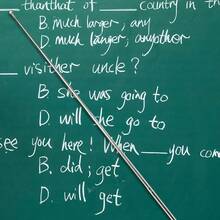 thanthat of ____ country in th
B. much larger, any
D. much langer, anyother
visither uncle?
B she was going to
D. will she go to
see you here! When ____ you com
B. did; get
D. will get